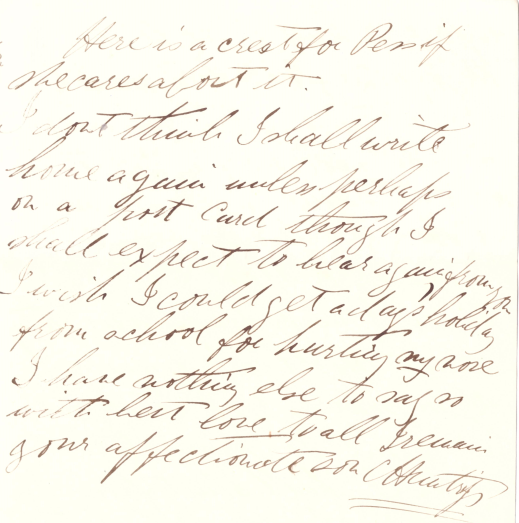 Here is a crest for Pess if
she cares about it.
I dont think I shall write
home again unless perhaps
on a post card though I
shall expect to hear again from you
I wish I could get a day's holiday
from school for hurting my nose
I have nothing else to say so
with best love to all I remain
your affectionate son